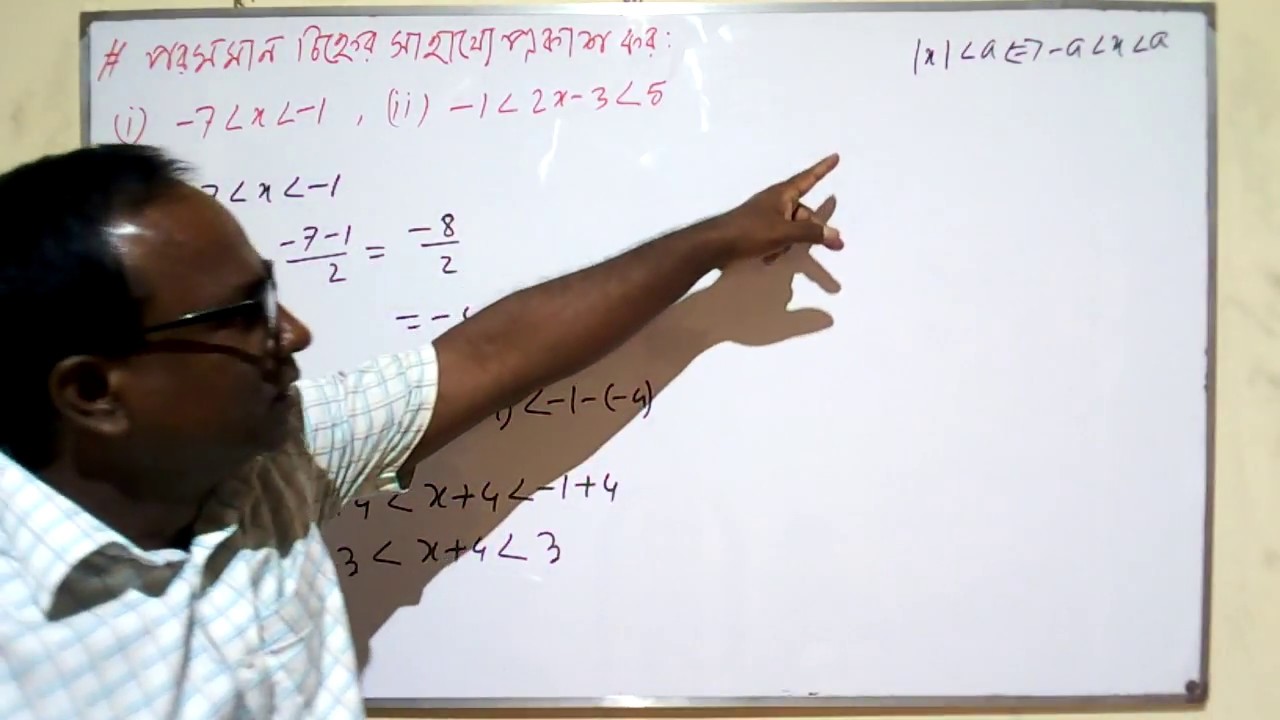 # পরমমান চিহ্নের সাহায্যে প্রকাশ কর:
|x| < a ⇔ -a < x < a
(i) -7 < x < -1 , (ii) -1 < 2x - 3 < 5
7 < x < -1
-7-1/2 = -8/2
= -
) < -1 - (-4)
4 < x+4 < -1+4
3 < x+4 < 3